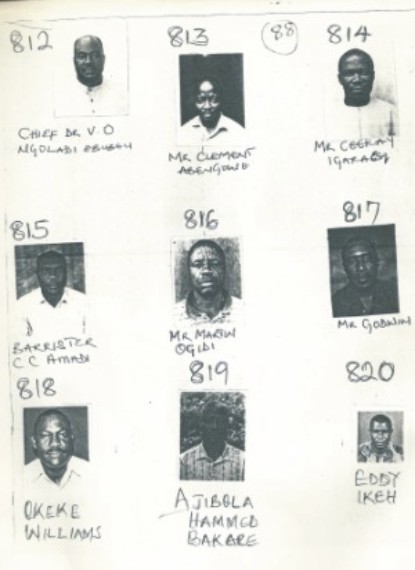 812 813 88 814
CHIEF DR V.O
MR CLEMENT
MR CEEKAY
815 816 817
BARRISTER
C C AMADI
MR MARTIN
OGIDI
MR GODWIN
818 819 820
OKEKE
WILLIAMS
AJIBOLA
HAMMED
BAKARE
EDDY
IKEH